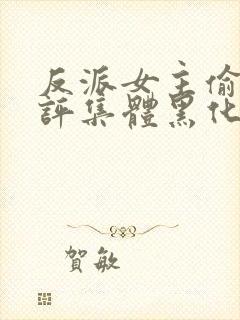 反派女主偷
評集體黑化
賀敏